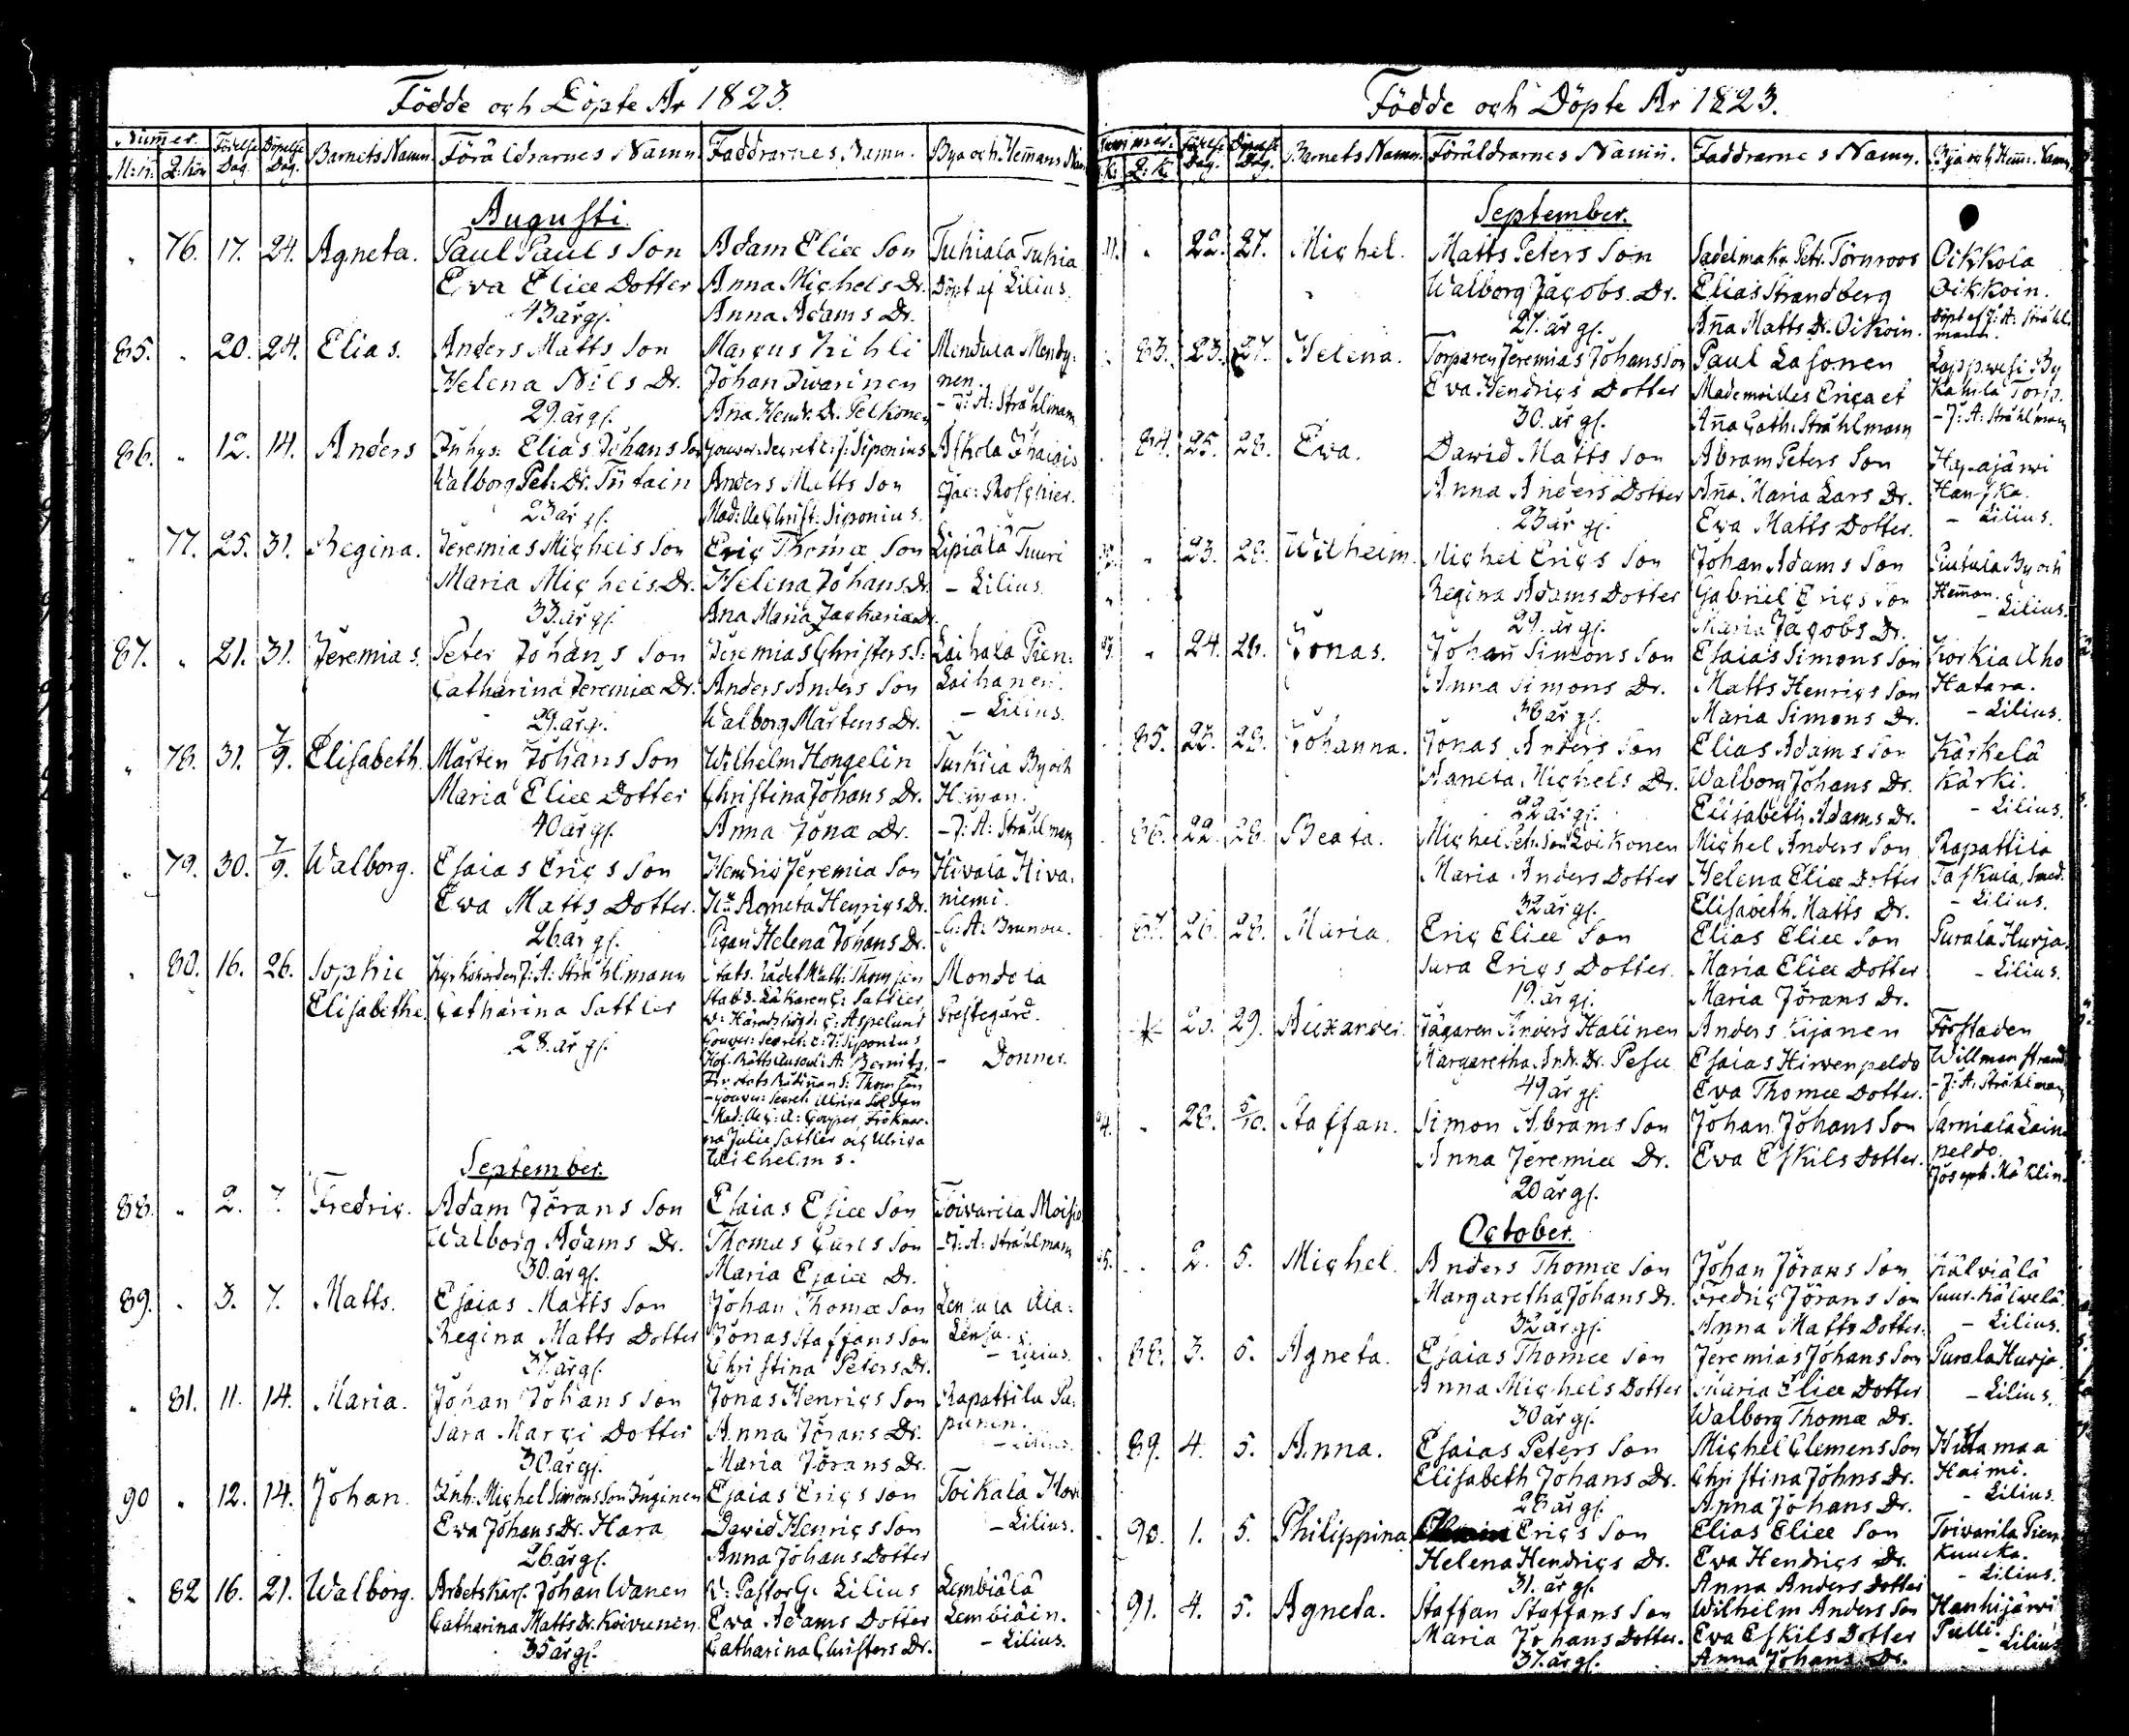 Födde och Döpte År 1823.
Num̄er. Födelse Döpelse Barnets Namn Föräldrarnes Namn Faddrarnes Namn. Bya och Hem̄ans Nām
M:n. Q:kön Dag. Dag.
Augusti.
76. 17. 24. Agneta. Paul Pauls Son Adam Eliæ Son Tuhiala Tuhia
Eva Eliæ Dotter Anna Michels Dr. Döpt af Lilius.
43 år gl. Anna Adams Dr.
85. 20. 24. Elias. Anders Matts Son Marcus Kihli Mendula Mendy:
Helena Nils Dr. Johan Iwarinen nen.
29. år gl. Añа Hendr. Dr. Pelkonen - J: A: Stråhlman
86. 12. 14. Anders Inhys: Elias Johans Son Gouver: Secret: C: J: Siponius Askola
Walborg Pet: Dr. Anders Matts Son
23 år gl. Mad:lle Christ: Siponius.
77. 25. 31. Regina. Jeremias Michels Son Eric Thomæ Son Lipiälä Tuuri
Maria Michels Dr. Helena Johans Dr. - Lilius.
33. år gl. Ana Maria Zachariæ Dr.
87. 21. 31. Jeremias. Peter Johans Son Jeremias Christers S: Laihala Pien:
Catharina Jeremiæ Dr. Anders Anders Son Laihanen.
29. år gl. Walborg Mårtens Dr. - Lilius.
78. 31. 7/9. Elisabeth. Mårten Johans Son Wilhelm Hongelin Turkiia By och
Maria Eliæ Dotter Christina Johans Dr. Heman.
40 år gl. Anna Jonæ Dr. - J: A: Strählman
79. 30. 7/9. Walborg. Esaias Erics Son Hendric Jeremia Son Hivala Hiva:
Ewa Matts Dotter. Agneta Henrics Dr. niemi.
26. år gl. Pigan Helena Johans Dr. - C: A: Brunou.
80. 16. 26. Sophie Kyrkoherden J: A: Stråhlmann Stats-Rådet Matth: Thomson Mondola
Elisabethe. Catharina Sattler Stabs-Läkaren C: Sattler Prestegård.
28. år gl. v: Häradshöfd: C: Aspelund
Gouver: Secret: C: J: Siponius
Hof-Rätts Auscul: A: Bernitz, - Donner.
Thomson
- Gouver: Secret: Ulrica
Mad:lle C: A: Fröknar-
na Julie Sattler och Ulrica
Wilhelms.
September.
88. 2. 7. Fredric. Adam Jörans Son Esaias Esiæ Son Toivarila Moisio
Walborg Adams Dr. Thomas Carls Son - J: A: Stråhlman
30. år gl. Maria Esaiæ Dr.
89. 3. 7. Matts. Esaias Matts Son Johan Thomæ Son Lensula Ala:
Regina Matts Dotter Jonas Staffans Son Lensu.
37. år gl. Christina Peters Dr. - Lilius.
81. 11. 14. Maria. Johan Johans Son Jonas Henrics Son Rapattila Pa:
Sara Marci Dotter Anna Jörans Dr. punen.
30. år gl. Maria Jörans Dr. - Lilius.
90 12. 14. Johan. Inh: Michel Simons Son Inginen Esaias Erics Son Toikala
Ewa Johans Dr. Hara David Henrics Son - Lilius.
26. år gl. Anna Johans Dotter
82 16. 21. Walborg. Arbets Karl. Johan Wanen V: Pastor G: Lilius Lembiälä
Catharina Matts Dr. Koivunen Eva Adams Dotter Lembiäin.
35 år gl. Catharina Christers Dr. - Lilius.
Födde och Döpte År 1823.
Num̄er. Födelse Döpelse Barnets Namn. Föräldrarnes Namn. Faddrarnes Namn. Bya och Hem̄: Namn
K: Q: k. Dag. Dag.
September.
22. 27. Michel. Matts Peters Son Sadelmakr. Petr. Törnroos Oikkola
Walborg Jacobs Dr. Elias Strandberg Oikkoin.
27. år gl. Añа Matts Dr. Oikoin. Döpt af J: A: Stråhl:
mann.
83. 23. 27. Helena. Torparen Jeremias Johansson Paul Lasonen Lappwesi By
Eva Hendrics Dotter Mademoilles Erica et Kahila Torp.
30. år gl. Añа Cath: Stråhlmann - J: A: Stråhlman
84. 25. 28. Eva. David Matts Son Abram Peters Son Hapajärvi
Anna Anders Dotter Añа Maria Lars Dr. Hanska.
23 år gl. Eva Matts Dotter. - Lilius.
23. 28. Wilhelm. Michel Erics Son Johan Adams Son By och
Regina Adams Dotter Gabriel Erics Son Hem̄an.
29. år gl. Maria Jacobs Dr. - Lilius.
24. 28. Jonas. Johan Simons Son Esaias Simons Son Korkia Aho
Anna Simons Dr. Matts Henrics Son Hatara.
36 år gl. Maria Simons Dr. - Lilius.
85. 23. 28. Johanna. Jonas Anders Son Elias Adams Son Kärkelä
Michels Dr. Walborg Johans Dr. Kärki.
22 år gl. Elisabeth Adams Dr. - Lilius.
86. 22. 28. Beata. Michel Petr. Son Loikonen Michel Anders Son Rapattila
Maria Anders Dotter Helena Eliæ Dotter Taskula, Smed.
32 år gl. Elisabeth Matts Dr. - Lilius.
87. 26. 28. Maria. Eric Eliæ Son Elias Eliæ Son Purala Hurja.
Sara Erics Dotter. Maria Eliæ Dotter - Lilius.
19. år gl. Maria Jörans Dr.
29. Alexander. Jägaren Anders Halinen Anders Kijanen Förstaden
Margaretha Andr. Dr. Pesu Esaias Hirvenpeldo Willmanstrand
49 år gl. Eva Thomæ Dotter. - J: A: Stråhlman
28. 5/10. Staffan. Simon Abrams Son Johan Johans Son Sarniala Lain:
Anna Jeremiæ Dr. Eva Eskils Dotter. peldo.
20 år gl. Joseph
October.
2. 5. Michel. Anders Thomæ Son Johan Jörans Son Kälviälä
Margaretha Johans Dr. Fredric Jörans Son Suur-Kälvelä.
32 år gl. Anna Matts Dotter. - Lilius.
88. 3. 5. Agneta. Esaias Thomæ Son Jeremias Johans Son Purala Hurja.
Anna Michels Dotter Maria Eliæ Dotter - Lilius.
30 år gl. Walborg Thomæ Dr.
89. 4. 5. Anna. Esaias Peters Son Michel Clemens Son
Elisabeth Johans Dr. Christina Johns Dr. Haimi.
28 år gl. Anna Johans Dr. - Lilius.
90. 1. 5. Philippina Erics Son Elias Eliæ Son Toivarila Pien:
Helena Hendrics Dr. Eva Hendrics Dr. Kuucka.
31. år gl. Anna Anders Dotter - Lilius.
91. 4. 5. Agneta. Staffan Staffans Son Wilhelm Anders Son Hanhijärvi
Maria Johans Dotter. Eva Eskils Dotter Pulli.
37. år gl. Anna Johans Dr. - Lilius